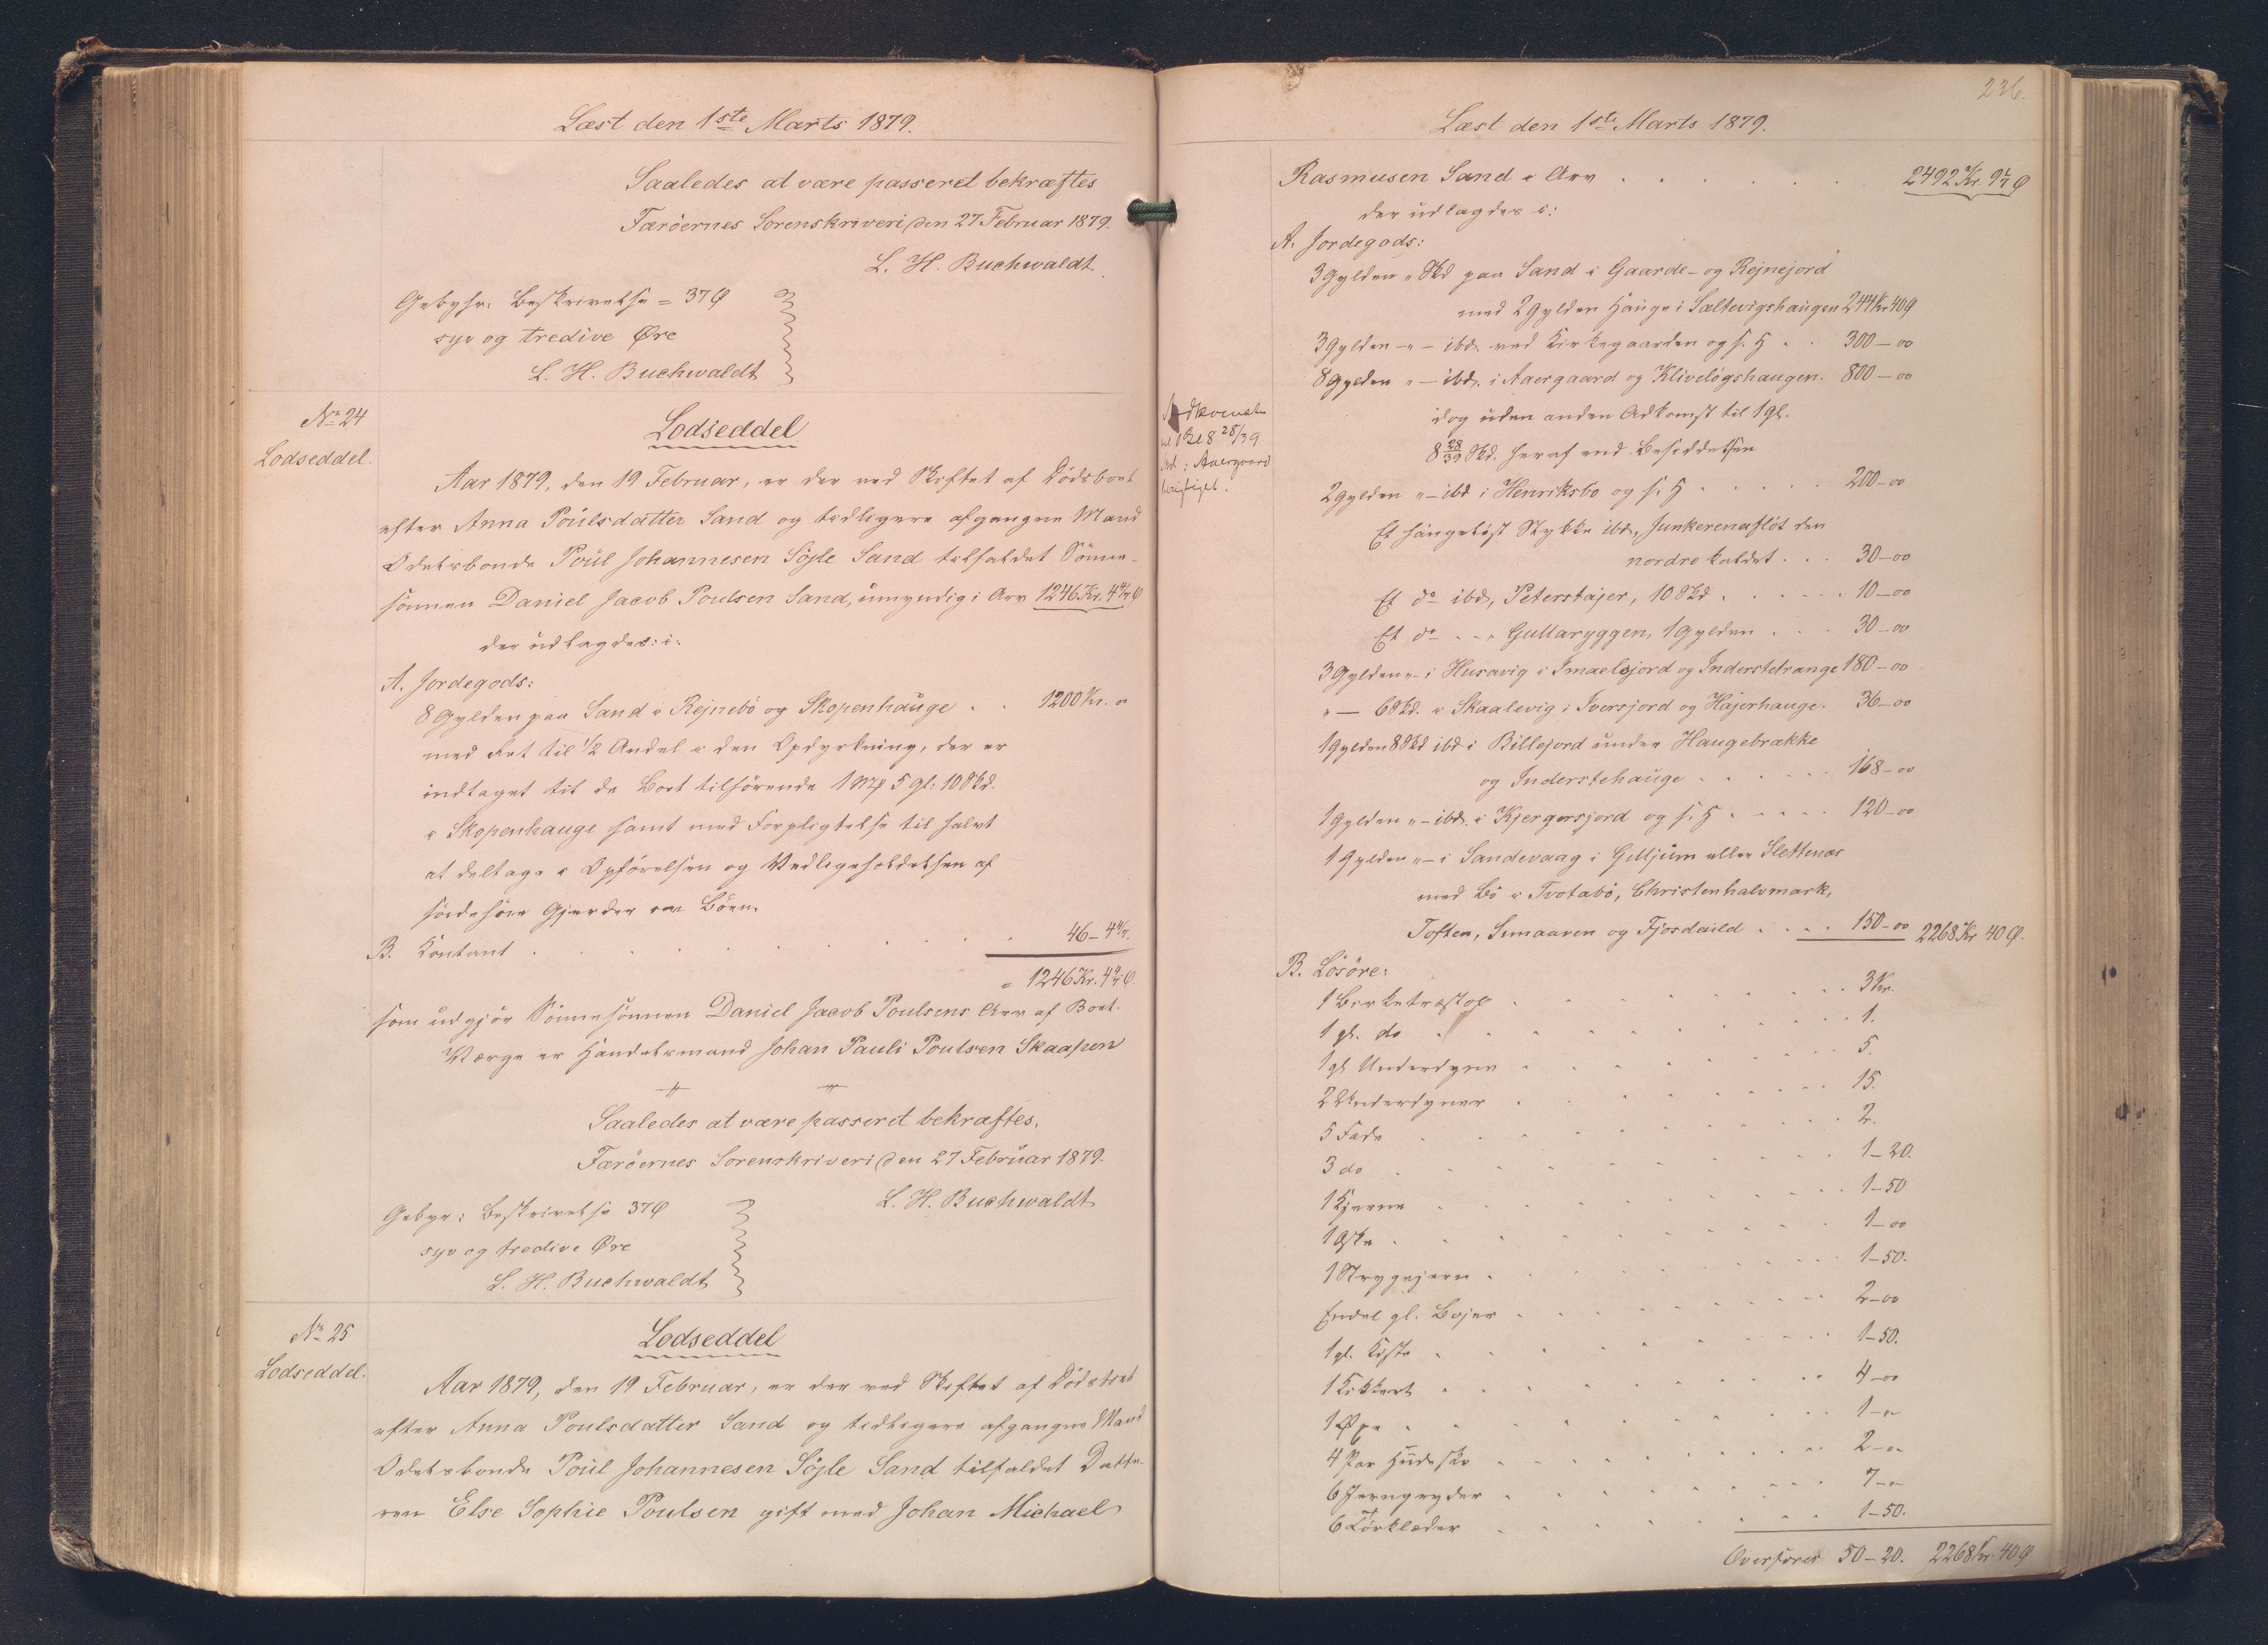 Læst den 1ste Marts 1879.
Saaledes at være passeret bekræftes
Færöernes Sorenskriveri den 27 Februar 1879.
L. H. Buchwaldt.
Gebyhr: Beskrivelse = 37 Ø
syv og tredive Øre
L. H. Buchwaldt
No 24
Lodseddel.
Lodseddel
Aar 1879, den 19 Februar, er der ved Skiftet af Dödsboet
efter Anna Poulsdatter Sand og tidligere afgangne Mand
Odelsbonde Poul Johannesen Söjle Sand tilfaldet Sönne-
sönnen Daniel Jacob Poulsen Sand, umyndig i Arv 1246 Kr. 4 4/7 Ø
der udlagdes: i:
A. Jordegods:
8 Gylden paa Sand i Rejnebö og Skopenhauge . . 1200 Kr. "
med Ret til 1/2 Andel i den Opdyrkning, der er
indtaget til de Boet tilhörende 1 Mk 5 gl: 10 Skd.
i Skopenhauge samt med Forpligtelse til halvt
at deltage i Opförelsen og Vedligeholdelsen af
söndehöre Gjerder om Böen.
B. Kontant . . . . . . 46 – 4 4/7.
= 1246 Kr. 4 4/7 Ø.
som udgjör Sönnesönnen Daniel Jacob Poulsens Arv af Boet.
Værge er Handelsmand Johan Pauli Poulsen Skaapen
Saaledes at være passeret bekræftes.
Færöernes Sorenskriveri den 27 Februar 1879.
L. H. Buchwaldt
Gebyr: Beskrivelse 37 Ø
syv og tredive Øre
L. H. Buchwaldt
No 25
Lodseddel.
Lodseddel
Aar 1879, den 19 Februar, er der ved Skiftet af Dödsboet
efter Anna Poulsdatter Sand og tidligere afgangne Mand
Odelsbonde Poul Johannesen Söjle Sand tilfaldet Datte-
ren Else Sophie Poulsen gift med Johan Michael
236.
Læst den 1ste Marts 1879.
Rasmusen Sand i Arv . . . . . . 2492 Kr. 9 1/7 Ø
der udlagdes i:
A. Jordegods:
3 Gylden " Skd paa Sand i Gaarde- og Rejnejord
med 2 Gylden Hauge i Sæltevigshaugen 244 Kr 40 Ø
3 Gylden – " – ibd. ved Kirkegaarden og s. H . . 300 – 00
8 Gylden " – ibd. i Aaergaard og Klivelögshaugen. 800 – 00
dog uden anden Adkomst til 1 gl.
8 28/39 Skd. heraf end Besiddelsen
Adkomsten
til 1 Gl 8 28/39
Skd i Aaergaard
berigtiget.
2 Gylden " – ibd i Henriksbo og s. H . . . . . 200 – 00
Et haugelöst Stykke ibd., Junkerensflöt den
nordre kaldet . . . 30 – 00
Et do ibd., Peterstajer, 10 Skd . . . . . . 10 – 00
Et do . . " Gullaryggen, 1 Gylden . . . 30 – 00
3 Gylden " – i Husavig i Imaelsjord og Inderstetrange 180 – 00
" — 6 Skd. i Skaalevig i Iversjord og Hájerhauge. 36 – 00
1 Gylden 8 Skd ibd i Billejord under Haugebrække
og Inderstehauge . . . . . . 168 – 00
1 Gylden " – ibd. i Kjergersjord og s. H . . . . . 120 – 00
1 Gylden " – i Sandevaag i Gilljum eller Slettenæs
med Bö i Tvotabö, Christenhalvmark,
Toften, Smaaren og Fjosdaild . . . . 150 – 00 2268 Kr 40 Ø.
B. Lösöre:
1 Birketræstol . . . . . . 3 Kr.
1 gl. do . . . . . . 1.
1 gl Underdyne . . . . . . 5.
2 Underdyner . . . . . . 15.
5 Fade . . . . . . 2.
3 do . . . . . . 1 – 20.
1 Kjerne . . . . . . 1 – 50
1 Æske . . . . . . 1 – 00
1 Strygejern . . . . . . 1 – 50.
Endel gl. Bojer . . . . . . 2 – 00
1 gl. Kiste . . . . . . 1 – 50.
1 Kikkert . . . . . . 4 – 00
1 Øxe . . . . . . 1 – "
4 Par Hudesko . . . . . . 2 – "
6 Jerngryder . . . . . . 7 – "
6 Törklæder . . . . . . 1 – 50.
Overføres 50 – 20. 2268 Kr. 40 Ø